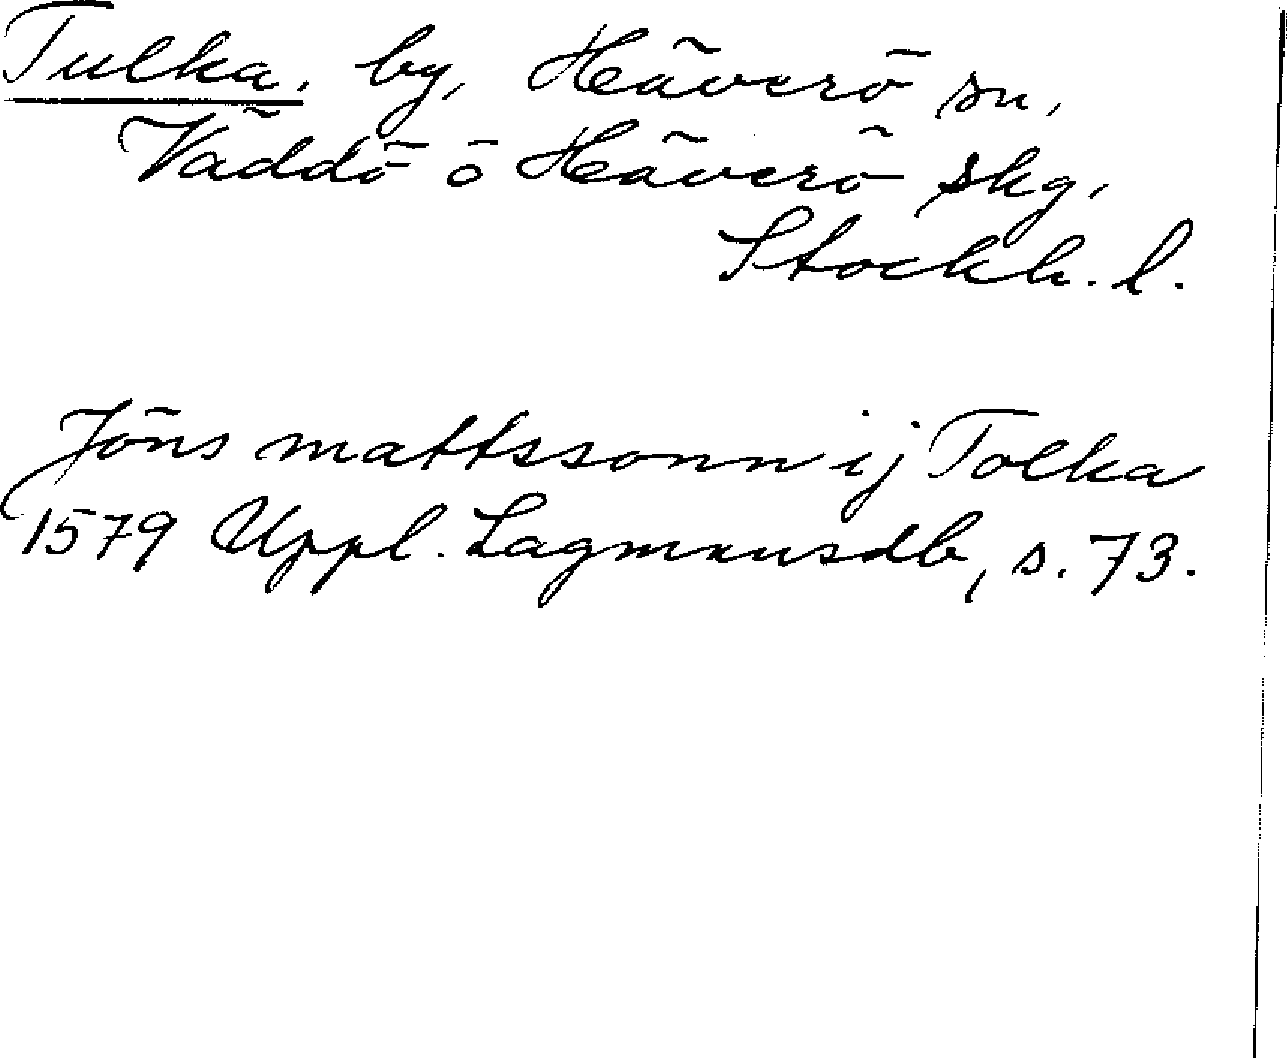 Tulka, by, Häverö sn,
Väddö o Häverö skg,
Stockh. l.
Jöns mattssonn ij Tolka
1579 Uppl. Lagmansdb, s. 73.